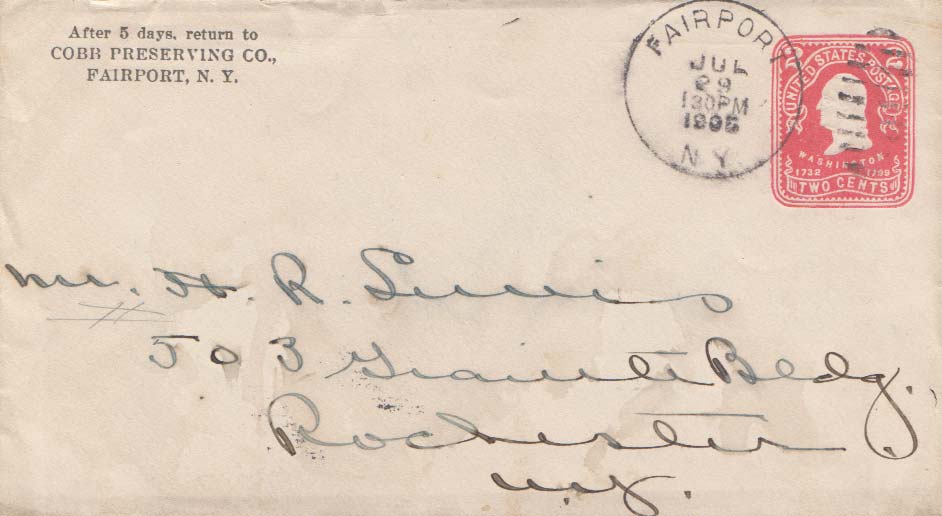 After 5 days, return to
COBB PRESERVING CO.,
FAIRPORT, N. Y.
FAIRPORT
JUL
29
130PM
1905
N.Y.
2 UNITED STATES POSTAGE 2
WASHINGTON
1732 1799
TWO CENTS
Mr. H. R.
503 Granite Bldg.
Rochester
N.Y.